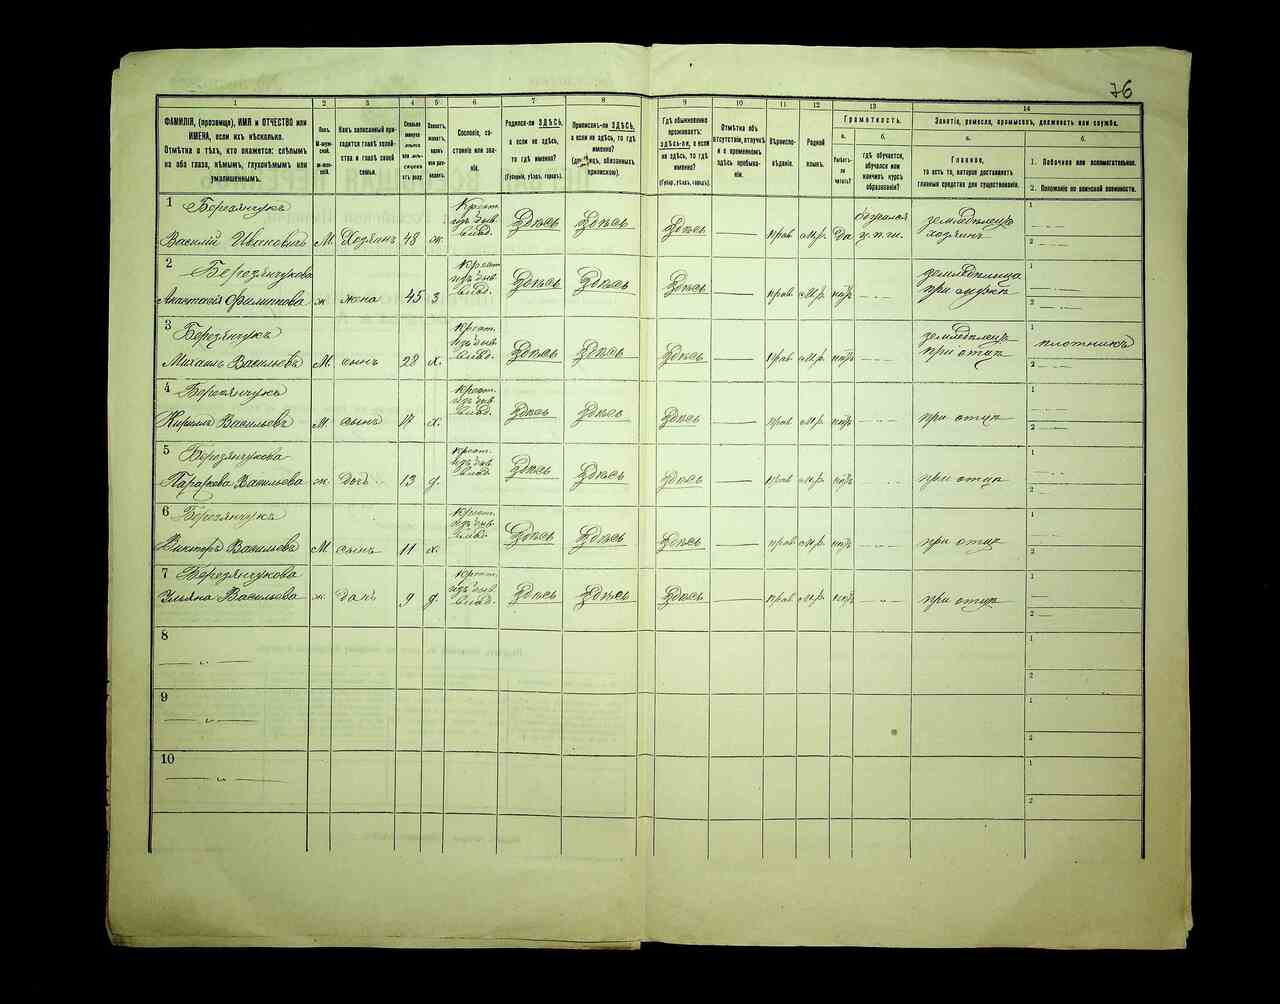 76
1 2 3 4 5 6 7 8 9 10 11 12 13 14
ФАМИЛІЯ, (прозвище), ИМЯ и ОТЧЕСТВО или
ИМЕНА, если ихъ нѣсколько.
Отмѣтка о тѣхъ, кто окажется: слѣпымъ
на оба глаза, нѣмымъ, глухонѣмымъ или
умалишеннымъ.
Полъ.
М-мужской.
Ж-женскій.
Какъ записанный приходится
главѣ хозяйства
и главѣ своей
семьи.
Сколько
минуло
лѣтъ
Холостъ,
женатъ,
вдовъ
или разведенъ.
Сословіе, состояніе
или званіе.
Родился-ли ЗДѢСЬ,
а если не здѣсь,
то гдѣ именно?
(Губернія, уѣздъ, городъ).
Приписанъ-ли ЗДѢСЬ,
а если не здѣсь, то гдѣ
именно?
(для лицъ, обязанныхъ
припискою).
Гдѣ обыкновенно
проживаетъ:
здѣсь-ли, а если
не здѣсь, то гдѣ
именно?
(Губер., уѣздъ, городъ).
Отмѣтка объ
отсутствіи, отлучкѣ
и о временномъ
здѣсь пребываніи.
Вѣроисповѣданіе.
Родной
языкъ.
Грамотность.
а.
Умѣетъ-ли
читать?
б.
гдѣ обучается,
обучался или
кончилъ курсъ
образованія?
Занятіе, ремесло, промыселъ, должность или служба.
а.
Главное,
то есть то, которое доставляетъ
главныя средства для существованія.
б.
1. Побочное или вспомогательное.
2. Положеніе по воинской повинности.
1 Березянчукъ
Василій Ивановичъ М. Хозяинъ 48 ж. Крест. изъ быв. влад. Здѣсь Здѣсь Здѣсь — прав. м.р. да обучался з.п.ш. земледѣлецъ хозяинъ 1 2
2 Березянчукова
Анастасія Филипова ж жена 45 з Крест. изъ быв. влад. Здѣсь Здѣсь Здѣсь — прав. м.р. нѣтъ — земледѣлица при мужѣ 1 2
3 Березянчукъ
Михаилъ Васильевъ М. сынъ 28 х. Крест. изъ быв. влад. Здѣсь Здѣсь Здѣсь — прав. м.р. нѣтъ — земледѣлецъ при отцѣ 1 плотникъ 2
4 Березянчукъ
Кирилъ Васильевъ М. сынъ 17 х. Крест. изъ быв. влад. Здѣсь Здѣсь Здѣсь — прав. м.р. нѣтъ — при отцѣ 1 2
5 Березянчукова
Параскева Васильева ж. дочь 13 д. Крест. изъ быв. влад. Здѣсь Здѣсь Здѣсь — прав. м.р. нѣтъ — при отцѣ 1 2
6 Березянчукъ
Викторъ Васильевъ М. сынъ 11 х. Крест. изъ быв. влад. Здѣсь Здѣсь Здѣсь — прав. м.р. нѣтъ — при отцѣ 1 2
7 Березянчукова
Ульяна Васильева ж. дочь 9 д. Крест. изъ быв. влад. Здѣсь Здѣсь Здѣсь — прав. м.р. нѣтъ — при отцѣ 1 2
8 — „ — 1 2
9 — „ — 1 2
10 — „ — 1 2